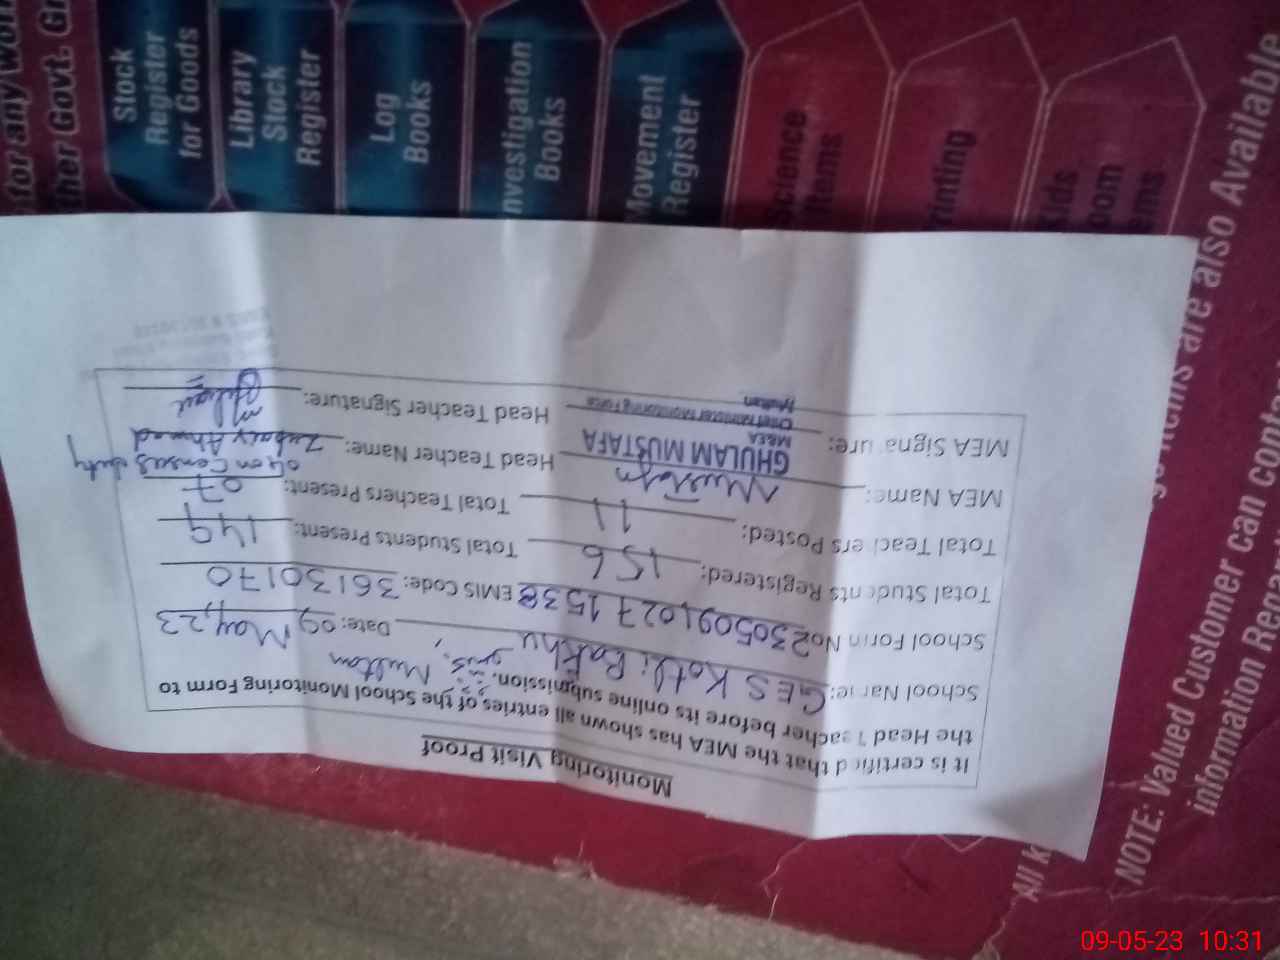 Monitoring Visit Proof
It is certified that the MEA has shown all entries of the School Monitoring Form to
the Head Teacher before its online submission.
School Name: GES Kotli Rakhu Multan
Date: 09 May, 23
School Form No: EMIS Code: 36130170
Total Students Registered: 156 Total Students Present: 149
Total Teachers Posted: 11 Total Teachers Present: 07
04 on Census duty
MEA Name: Mustafa Head Teacher Name: Zubair Ahmad
MEA Signature: GHULAM MUSTAFA Head Teacher Signature:
MEA
Chief Minister Monitoring Force
Multan
Stock
Register
for Goods
Library
Stock
Register
Log
Books
nvestigation
Books
Movement
Register
Science
Items
rinting
Kids
oom
ems
for any
ther Govt.
ms are also Available
All k
NOTE: Valued Customer can conta
information Regar
09-05-23 10:31